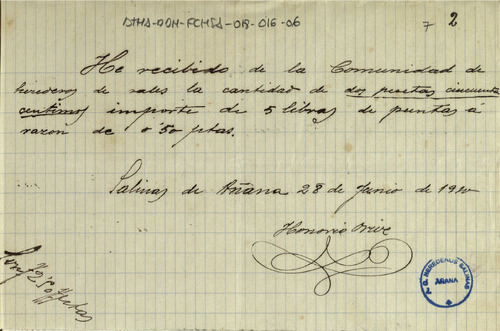 ATHA-DAH-FCMSA-019-016-06
7 2
He recibido de la Comunidad de
herederos de sales la cantidad de dos pesetas cincuenta
centimos importe de 5 libras de puntas á
razon de 0'50 ptas.
Salinas de Añana 28 de Junio de 1910
Honorio Orive
Son 2'50 Pesetas
J. G. HEREDEROS SALINAS
AÑANA